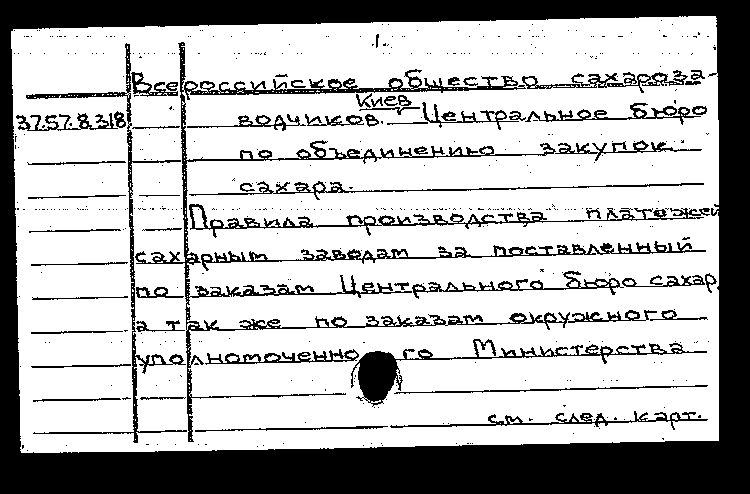 1.
Всероссийское общество сахароза-
37.57.8.318 водчиков. Киев Центральное бюро
по объединению закупок
сахара.
Правила производства платежей
сахарным заводам за поставленный
по заказам Центрального бюро сахар,
а так же по заказам окружного
уполномоченного Министерства
см. след. карт.